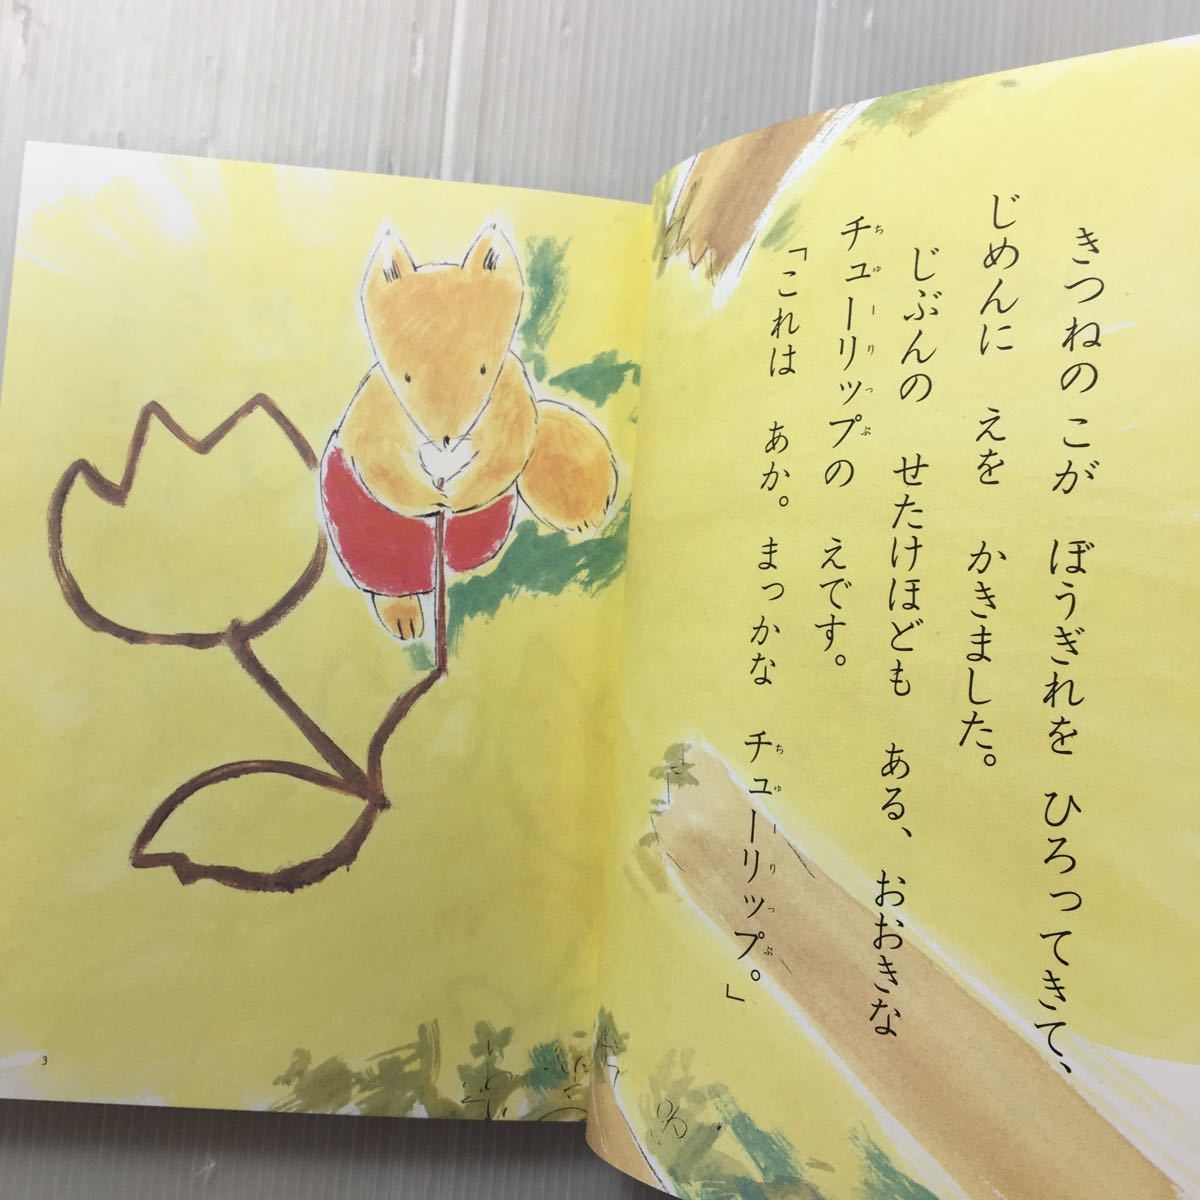 きつねのこが ぼうぎれを ひろってきて、
じめんに えを かきました。
じぶんの せたけほども ある、おおきな
チューリップの えです。
ちゅーりっぷ
「これは あか。まっかな チューリップ。」
ちゅーりっぷ
3